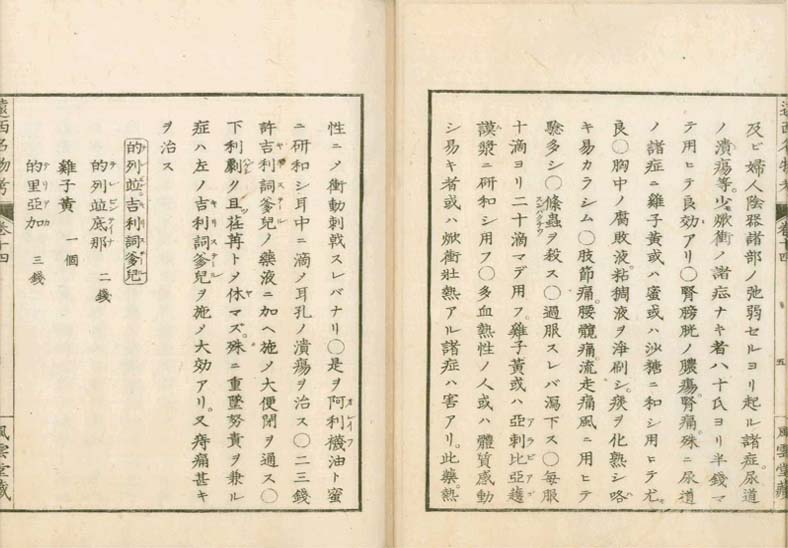 遠西名物考
卷十四
五
風雲堂藏
及ビ婦人陰器諸部ノ弛弱セルヨリ起ル諸症。尿道
ノ潰瘍等。少焮衝ノ諸症ナキ者ハ十氏ヨリ半錢マ
テ用ヒテ良効アリ〇腎膀胱ノ膿瘍。腎痛。殊ニ尿道
ノ諸症ニ雞子黃或ハ蜜或ハ沙糖ニ和シ用ヒテ尤
良〇胸中ノ腐敗液。粘稠液ヲ淨刷シ。痰ヲ化熟シ咯
キ易カラシム〇肢節痛。腰髖痛。流走痛風ニ用ヒテ
驗多シ〇條蟲ヲ殺ス〇過服スレバ瀉下ス〇每服
スンバクチウ
十滴ヨリ二十滴マデ用フ。雞子黃或ハ亞剌比亞
アラビア
謨漿ニ研和シ用フ〇多血熱性ノ人或ハ體質感動
シ易キ者或ハ焮衝壯熱アル諸症ハ害アリ。此藥熱
性ニメ衝動刺戟スレバナリ〇是ヲ阿利機油ト蜜
オレイフ
ニ研和シ耳中ニ滴メ耳孔ノ潰瘍ヲ治ス〇二三錢
許吉利詞爹兒ノ藥液ニ加ヘ施メ大便閉ヲ通ス〇
下利劇ク且荏苒トメ休マズ。殊ニ重墜努責ヲ兼ル
症ハ左ノ吉利詞爹兒ヲ施メ大効アリ。又痔痛甚キ
キリステール
ヲ治ス
的列竝吉利詞爹兒
的列竝底那 二錢
テレビンテイナ
雞子黃 一個
的里亞加 三錢
テリアカ
遠西名物考
卷十四
風雲堂藏